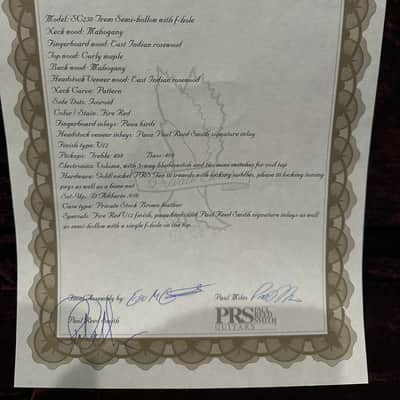 Model: SC250 Trem Semi-hollow with f-hole
Neck wood: Mahogany
Fingerboard wood: East Indian rosewood
Top wood: Curly maple
Back wood: Mahogany
Headstock Veneer wood: East Indian rosewood
Neck Carve: Pattern
Side Dots: Ivoroid
Color / Stain: Fire Red
Fingerboard inlays: Paua birds
Headstock veneer inlays: Paua Paul Reed Smith signature inlay
Finish type: U12
Pickups: Treble: 408 Bass: 408
Electronics: Volume, with 3-way blade switch and two mini switches for coil tap
Hardware: Gold/nickel PRS Gen III tremolo with locking saddles, phase III locking tuning
pegs as well as a bone nut
Set-Up: D'Addario .010
Case type: Private Stock Brown leather
Specials: Fire Red U12 finish, paua birds and Paul Reed Smith signature inlays as well
as semi-hollow with a single f-hole on the top.
Final Assembly by:
Paul Miles
Paul Reed Smith
PRS PAUL REED SMITH
GUITARS